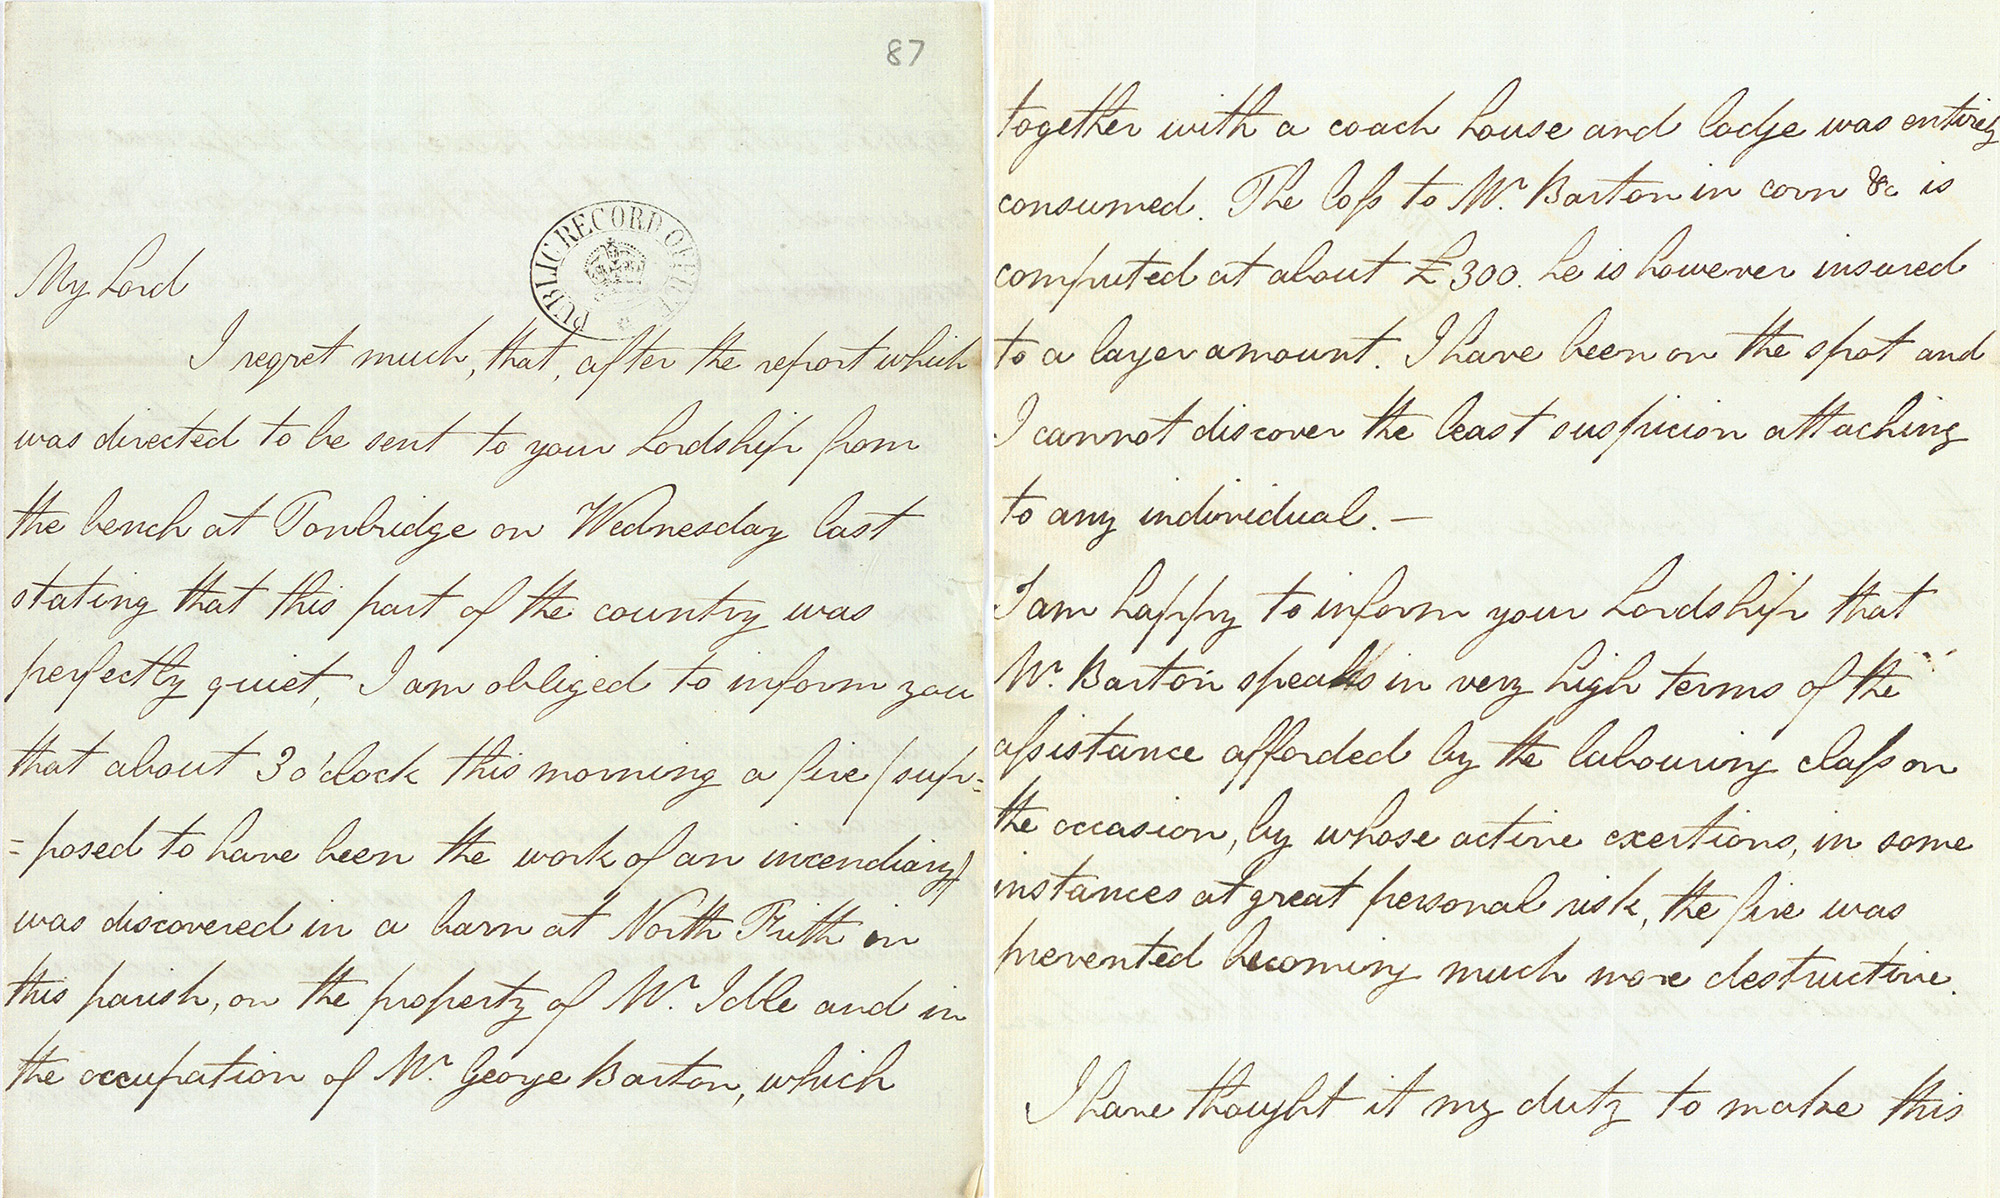 87
PUBLIC RECORD OFFICE
My Lord
I regret much, that, after the report which
was directed to be sent to your Lordship from
the bench at Tonbridge on Wednesday last
stating that this part of the country was
perfectly quiet, I am obliged to inform you
that about 3 o'clock this morning a fire (sup=
=posed to have been the work of an incendiary)
was discovered in a barn at North Frith in
this parish, on the property of Mr. Idle and in
the occupation of Mr. George Barton, which
together with a coach house and lodge was entirely
consumed. The loſs to Mr. Barton in corn &c is
computed at about £300. he is however insured
to a larger amount. I have been on the spot and
I cannot discover the least suspicion attaching
to any individual. —
I am happy to inform your Lordship that
Mr. Barton speaks in very high terms of the
aſsistance afforded by the labouring claſs on
the occasion, by whose active exertions, in some
instances at great personal risk, the fire was
prevented becoming much more destructive.
I have thought it my duty to make this